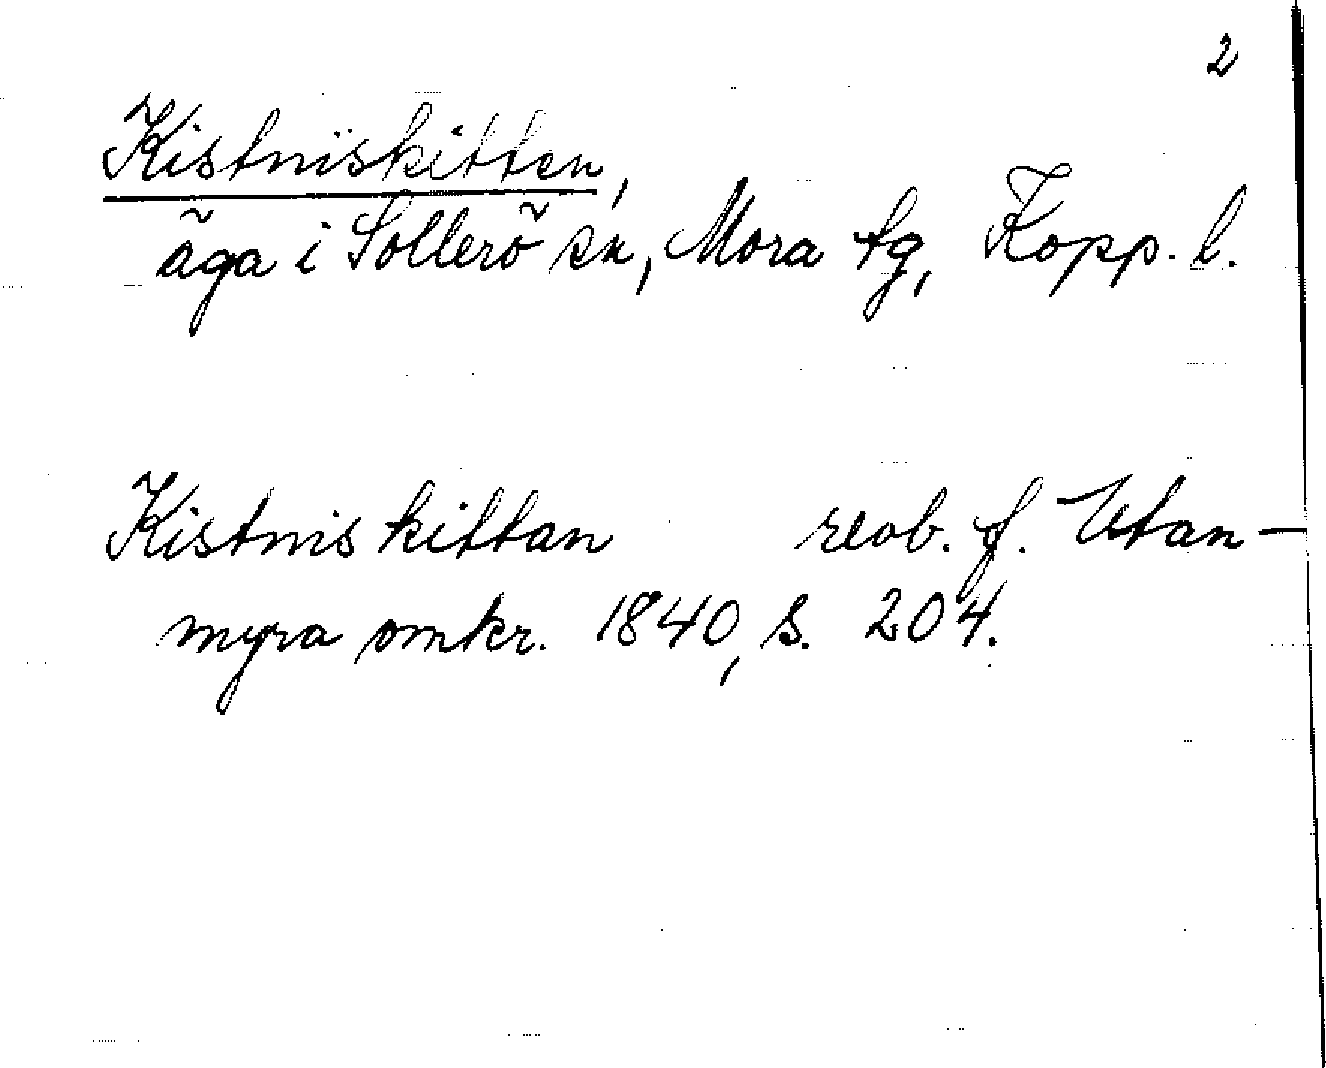 2
Kistniskitten,
äga i Sollerö sn, Mora tg, Kopp. l.
Kistnis kittan reob. f. Utan-
myra omkr. 1840, s. 204.